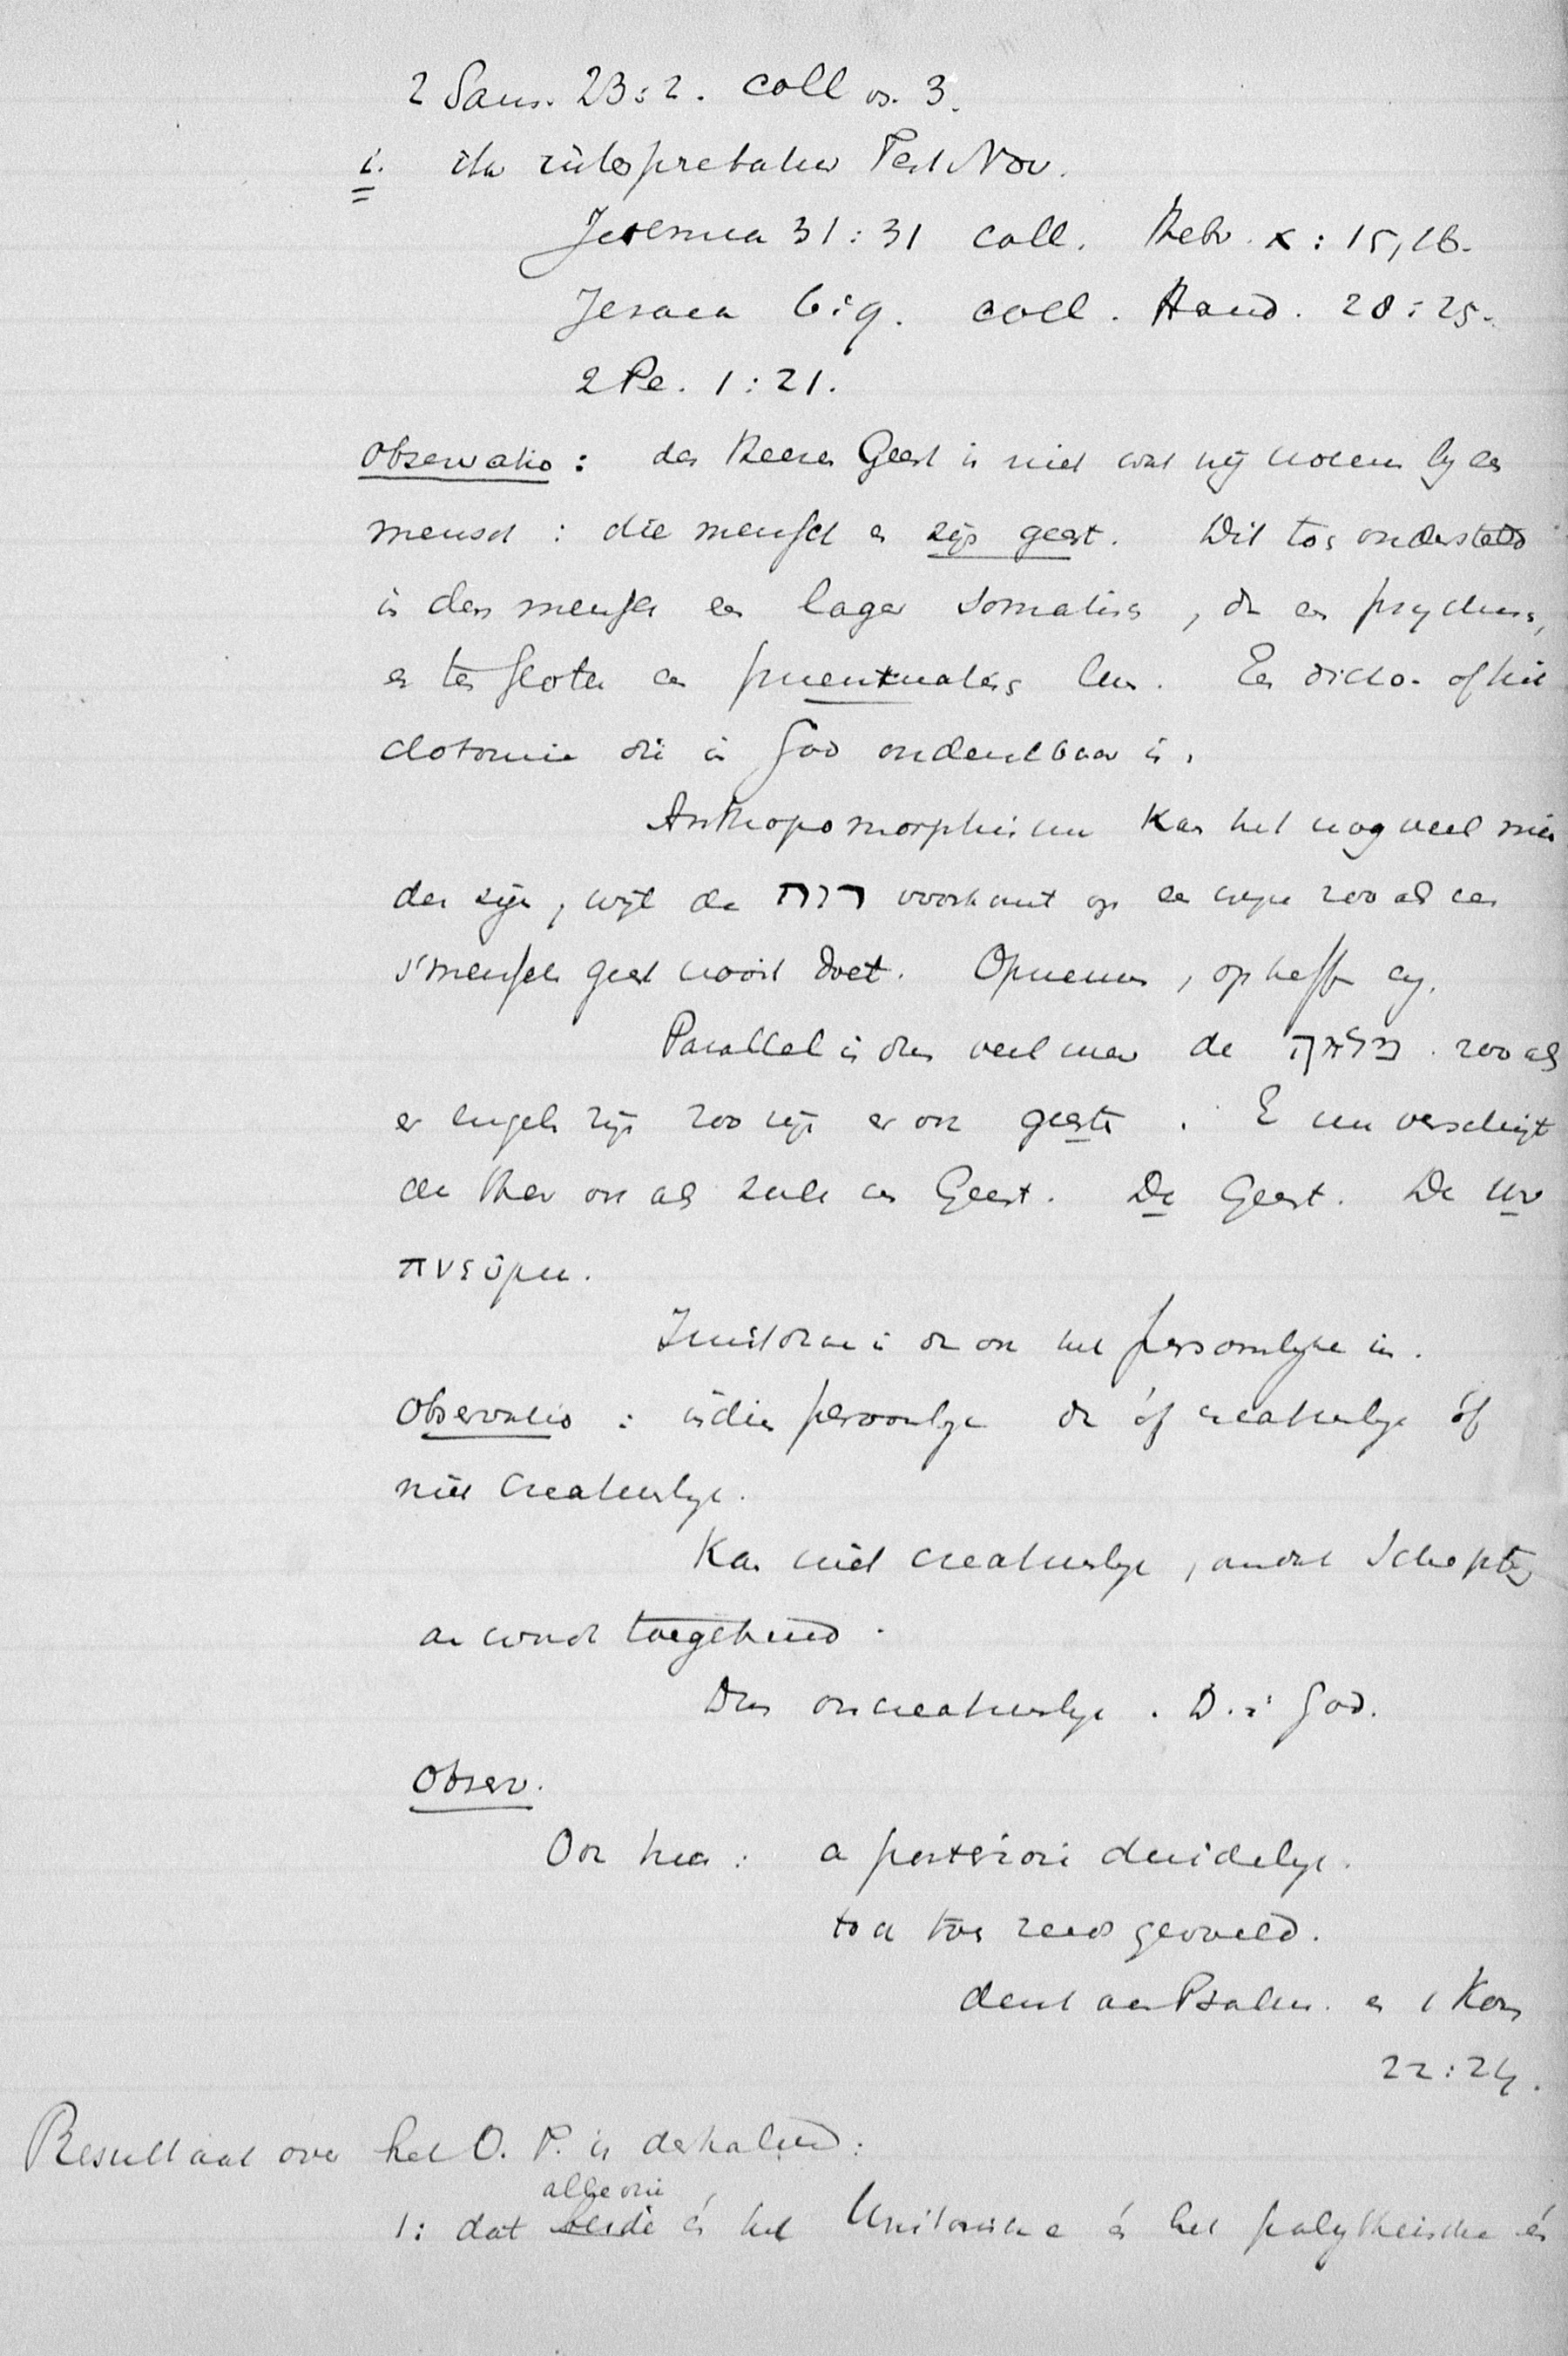 2 Sam. 23:2. coll vs. 3.
i. ita interpretatur Test. Nov.
Jeremia 31:31 coll. Hebr. X: 15, 16.
Jesaia 6:9. coll. Hand. 28:25.
2 Pe. 1:21.
Observatio: des Heeren Geest is niet wat wij noemen bij een
mensch: die mensch en zijn geest. Dit toch onderstelt
in den mensch een lager somatisch, dan een psychisch,
en ten slotte een pneumatisch leven. Een dicho- of tri
chotomie die in God ondenkbaar is.
Anthropomorphisme kan het nog veel min
der zijn, wijl de רוח voorkomt op een wijze zooals een
s'menschen geest nooit doet. Opnemen, opheffen
Parallel is dus veel meer de מלאך. zooals
er engelen zijn zoo zijn er ook geesten. En nu verschijnt
de Heer ook als zulk een Geest. De Geest. De
πνεῦμα.
er dan ook het persoonlijke in.
Observatio: indien persoonlijk dan óf creatuurlijk óf
niet creatuurlijk.
Kan niet creatuurlijk, omdat Schepping
er wordt toegekend.
Dus oncreatuurlijk. D.i. God.
Observ.
Ook hier: a posteriori duidelijk.
toch toen reeds gevoeld.
denk aan Psalm. en 1 Kon
22:24.
Resultaat over het O. T. is derhalve:
alle drie
1: dat beide én het Unitarische én het polytheische én